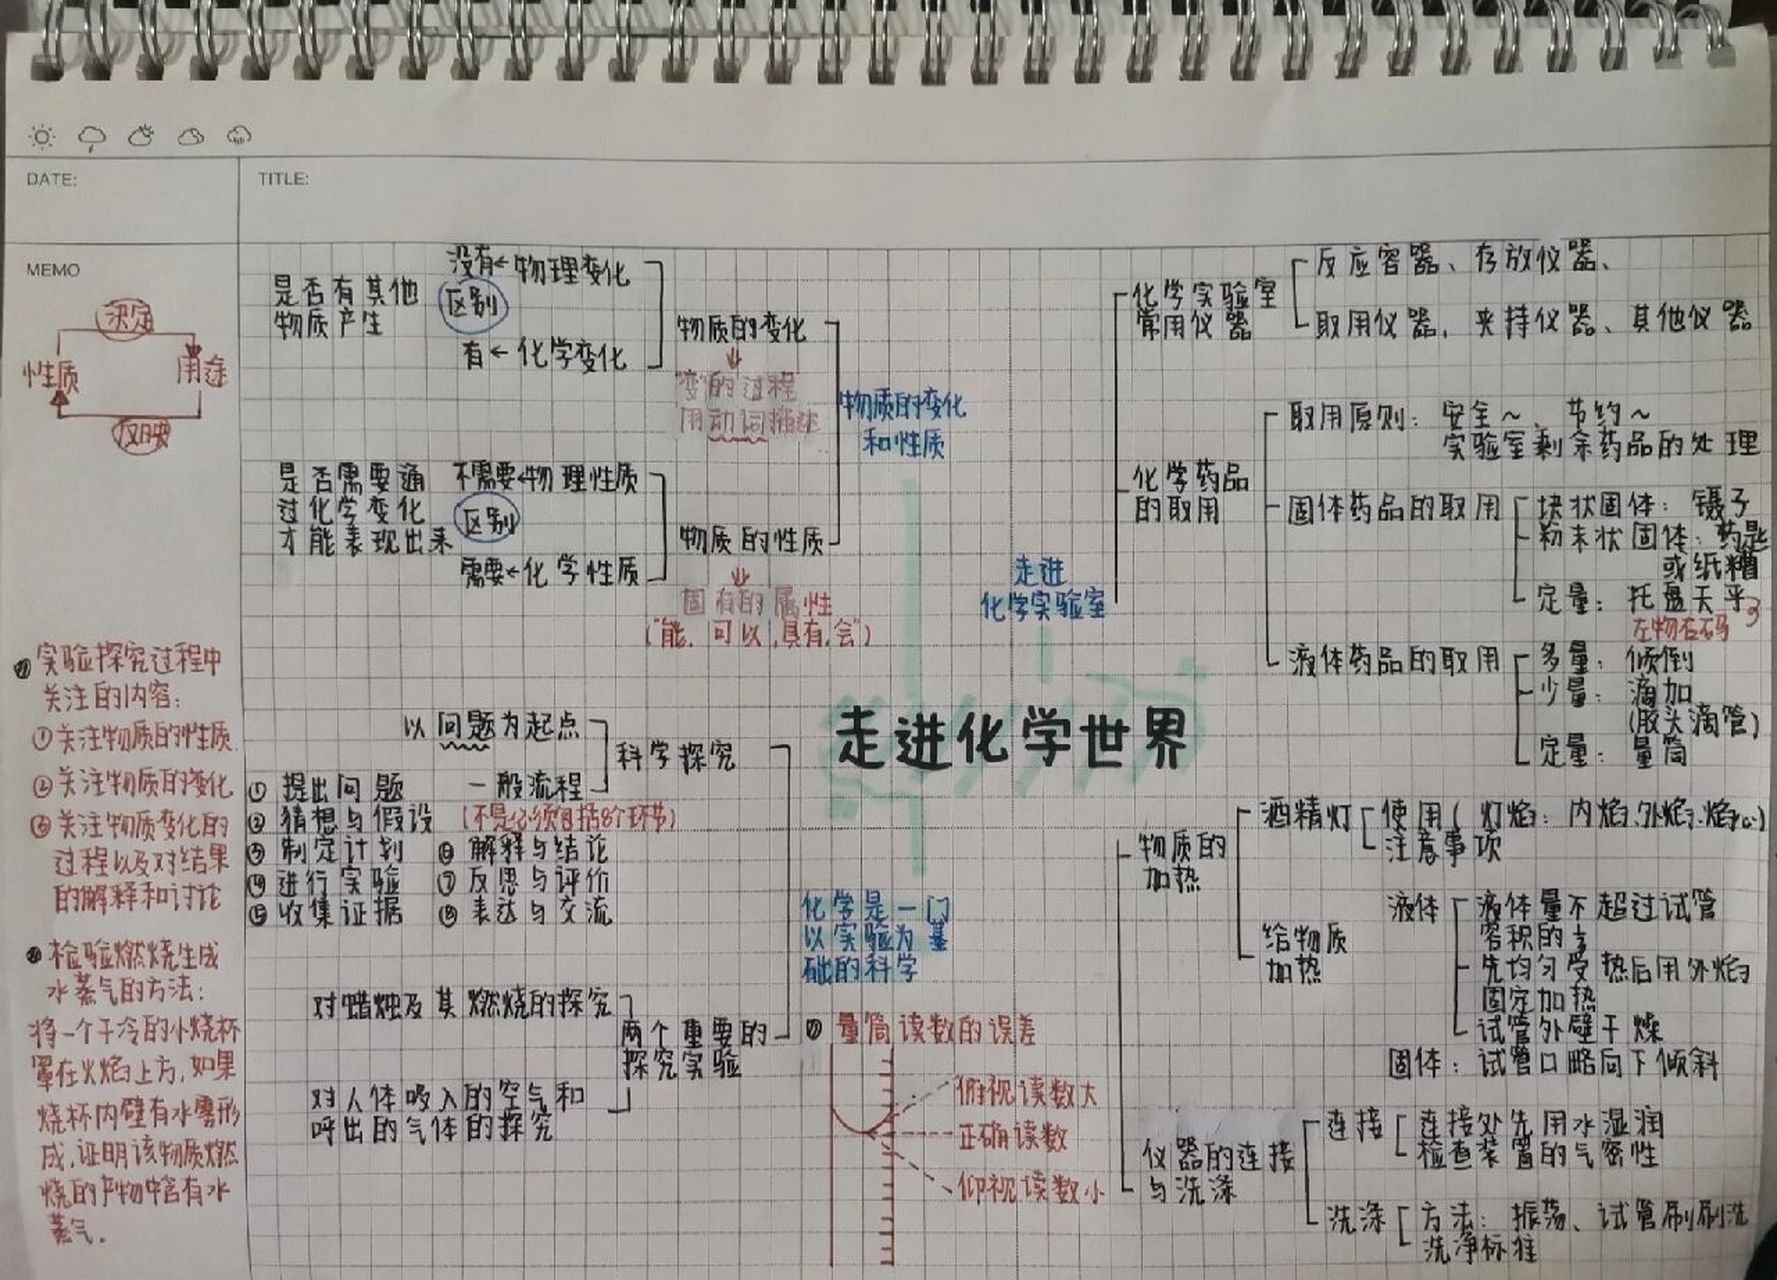 DATE:
TITLE:
MEMO
决定
性质
用途
反映
❶实验探究过程中
关注的内容:
①关注物质的性质
②关注物质的变化
③关注物质变化的
过程以及对结果
的解释和讨论
❷检验燃烧生成
水蒸气的方法:
将一个干冷的小烧杯
罩在火焰上方,如果
烧杯内壁有水雾形
成,证明该物质燃
烧的产物中含有水
蒸气.
是否有其他
物质产生
没有←物理变化
区别
有←化学变化
物质的变化
"变"的过程
用动词描述
是否需要通
过化学变化
才能表现出来
不需要←物理性质
区别
需要←化学性质
物质的性质
固有的属性
("能,可以,具有,会")
物质的变化
和性质
以问题为起点
科学探究
一般流程
(不是必须包括8个环节)
①提出问题
②猜想与假设
③制定计划
④进行实验
⑤收集证据
⑥解释与结论
⑦反思与评价
⑧表达与交流
对蜡烛及其燃烧的探究
两个重要的
探究实验
对人体吸入的空气和
呼出的气体的探究
化学是一门
以实验为基
础的科学
走进化学世界
量筒读数的误差
俯视读数大
正确读数
仰视读数小
走进
化学实验室
化学实验室
常用仪器
反应容器、存放仪器、
取用仪器、夹持仪器、其他仪器
化学药品
的取用
取用原则:安全~、节约~
实验室剩余药品的处理
固体药品的取用
块状固体:镊子
粉末状固体:药匙
或纸槽
定量:托盘天平
左物右码
液体药品的取用
多量:倾倒
少量:滴加
(胶头滴管)
定量:量筒
物质的
加热
酒精灯
使用(灯焰:内焰、外焰、焰心)
注意事项
给物质
加热
液体
液体量不超过试管
容积的⅓
先均匀受热后用外焰
固定加热
试管外壁干燥
固体:试管口略向下倾斜
仪器的连接
与洗涤
连接
连接处先用水湿润
检查装置的气密性
洗涤
方法:振荡、试管刷刷洗
洗净标准